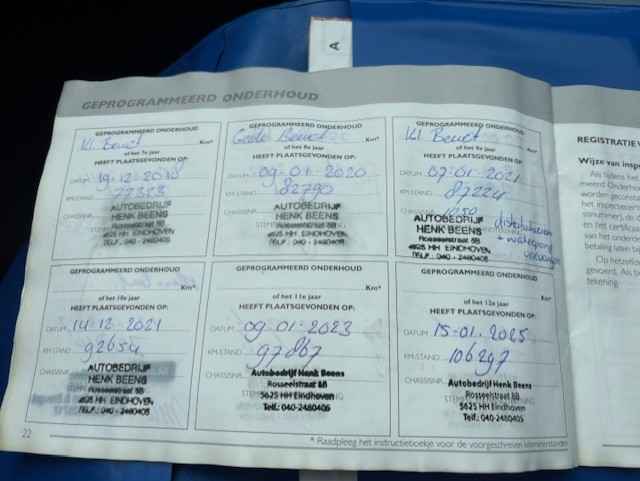 A
GEPROGRAMMEERD ONDERHOUD
GEPROGRAMMEERD ONDERHOUD
Kl. Beurt Km*
of het 7e jaar
HEEFT PLAATSGEVONDEN OP:
DATUM 19-12-2018
KM.STAND 72323
CHASSISNR.
AUTOBEDRIJF
HENK BEENS
Rosseelstraat 8B
5625 HH EINDHOVEN
TELF.: 040 - 2480405
GEPROGRAMMEERD ONDERHOUD
Grote Beurt Km*
of het 8e jaar
HEEFT PLAATSGEVONDEN OP:
DATUM 09-01-2020
KM.STAND 82790
CHASSISNR.
AUTOBEDRIJF
HENK BEENS
Rosseelstraat 8B
5625 HH EINDHOVEN
TELF.: 040 - 2480405
GEPROGRAMMEERD ONDERHOUD
Kl Beurt Km*
of het 9e jaar
HEEFT PLAATSGEVONDEN OP:
DATUM 07-01-2021
KM.STAND 87224
AUTOBEDRIJF
HENK BEENS
Rosseelstraat 8B
5625 HH EINDHOVEN
TELF.: 040 - 2480405
distributieriem
+ waterpomp
vervangen
GEPROGRAMMEERD ONDERHOUD
Km*
of het 10e jaar
HEEFT PLAATSGEVONDEN OP:
DATUM 14-12-2021
KM.STAND 92654
CHASSISNR.
AUTOBEDRIJF
HENK BEENS
Rosseelstraat 8B
5625 HH EINDHOVEN
TELF.: 040 - 2480405
GEPROGRAMMEERD ONDERHOUD
Km*
of het 11e jaar
HEEFT PLAATSGEVONDEN OP:
DATUM 09-01-2023
KM.STAND 97867
CHASSISNR.
Autobedrijf Henk Beens
Rosseelstraat 8B
5625 HH Eindhoven
Telf.: 040-2480405
GEPROGRAMMEERD ONDERHOUD
Km*
of het 12e jaar
HEEFT PLAATSGEVONDEN OP:
DATUM 15-01-2025
KM.STAND 106297
CHASSISNR.
Autobedrijf Henk Beens
Rosseelstraat 8B
5625 HH Eindhoven
Telf.: 040-2480405
22
* Raadpleeg het instructieboekje voor de voorgeschreven kilometerstanden
REGISTRATIE
Wijze van inspe
Als tijdens het
meerd Onderho
worden geconst
het inspectierap
en het certificaa
van het onderho
betaling laten be
Op hetzelfde
gevoerd. Als be
tekening.